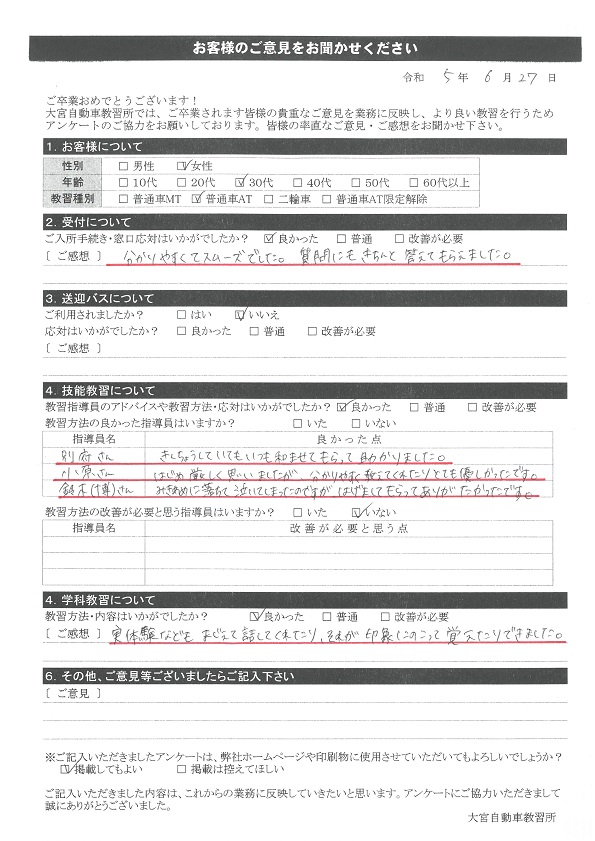 お客様のご意見をお聞かせください
令和 5 年 6 月 27 日
ご卒業おめでとうございます！
大宮自動車教習所では、ご卒業されます皆様の貴重なご意見を業務に反映し、より良い教習を行うため
アンケートのご協力をお願いしております。皆様の率直なご意見・ご感想をお聞かせ下さい。
1. お客様について
性別 □ 男性 ☑ 女性
年齢 □ 10代 □ 20代 ☑ 30代 □ 40代 □ 50代 □ 60代以上
教習種別 □ 普通車MT ☑ 普通車AT □ 二輪車 □ 普通車AT限定解除
2. 受付について
ご入所手続き・窓口応対はいかがでしたか？ ☑ 良かった □ 普通 □ 改善が必要
［ ご感想 ］ 分かりやすくてスムーズでした。質問にもきちんと答えてもらえました。
3. 送迎バスについて
ご利用されましたか？ □ はい ☑ いいえ
応対はいかがでしたか？ □ 良かった □ 普通 □ 改善が必要
［ ご感想 ］
4. 技能教習について
教習指導員のアドバイスや教習方法・応対はいかがでしたか？ ☑ 良かった □ 普通 □ 改善が必要
教習方法の良かった指導員はいますか？ □ いた □ いない
指導員名 良かった点
別府さん きんちょうしていてもいつも和ませてもらって助かりました。
小原さん はじめ厳しく思いましたが、分かりやすく教えてくれたりとても優しかったです。
鈴木(博)さん みきわめに落ちて泣いてしまったのですが はげましてもらってありがたかったです。
教習方法の改善が必要と思う指導員はいますか？ □ いた ☑ いない
指導員名 改善が必要と思う点
4. 学科教習について
教習方法・内容はいかがでしたか？ ☑ 良かった □ 普通 □ 改善が必要
［ ご感想 ］ 実体験などもまじえて話してくれたり、それが印象にのこって覚えたりできました。
6. その他、ご意見等ございましたらご記入下さい
［ ご意見 ］
※ご記入いただきましたアンケートは、弊社ホームページや印刷物に使用させていただいてもよろしいでしょうか？
☑ 掲載してもよい □ 掲載は控えてほしい
ご記入いただきました内容は、これからの業務に反映していきたいと思います。アンケートにご協力いただきまして
誠にありがとうございました。
大宮自動車教習所